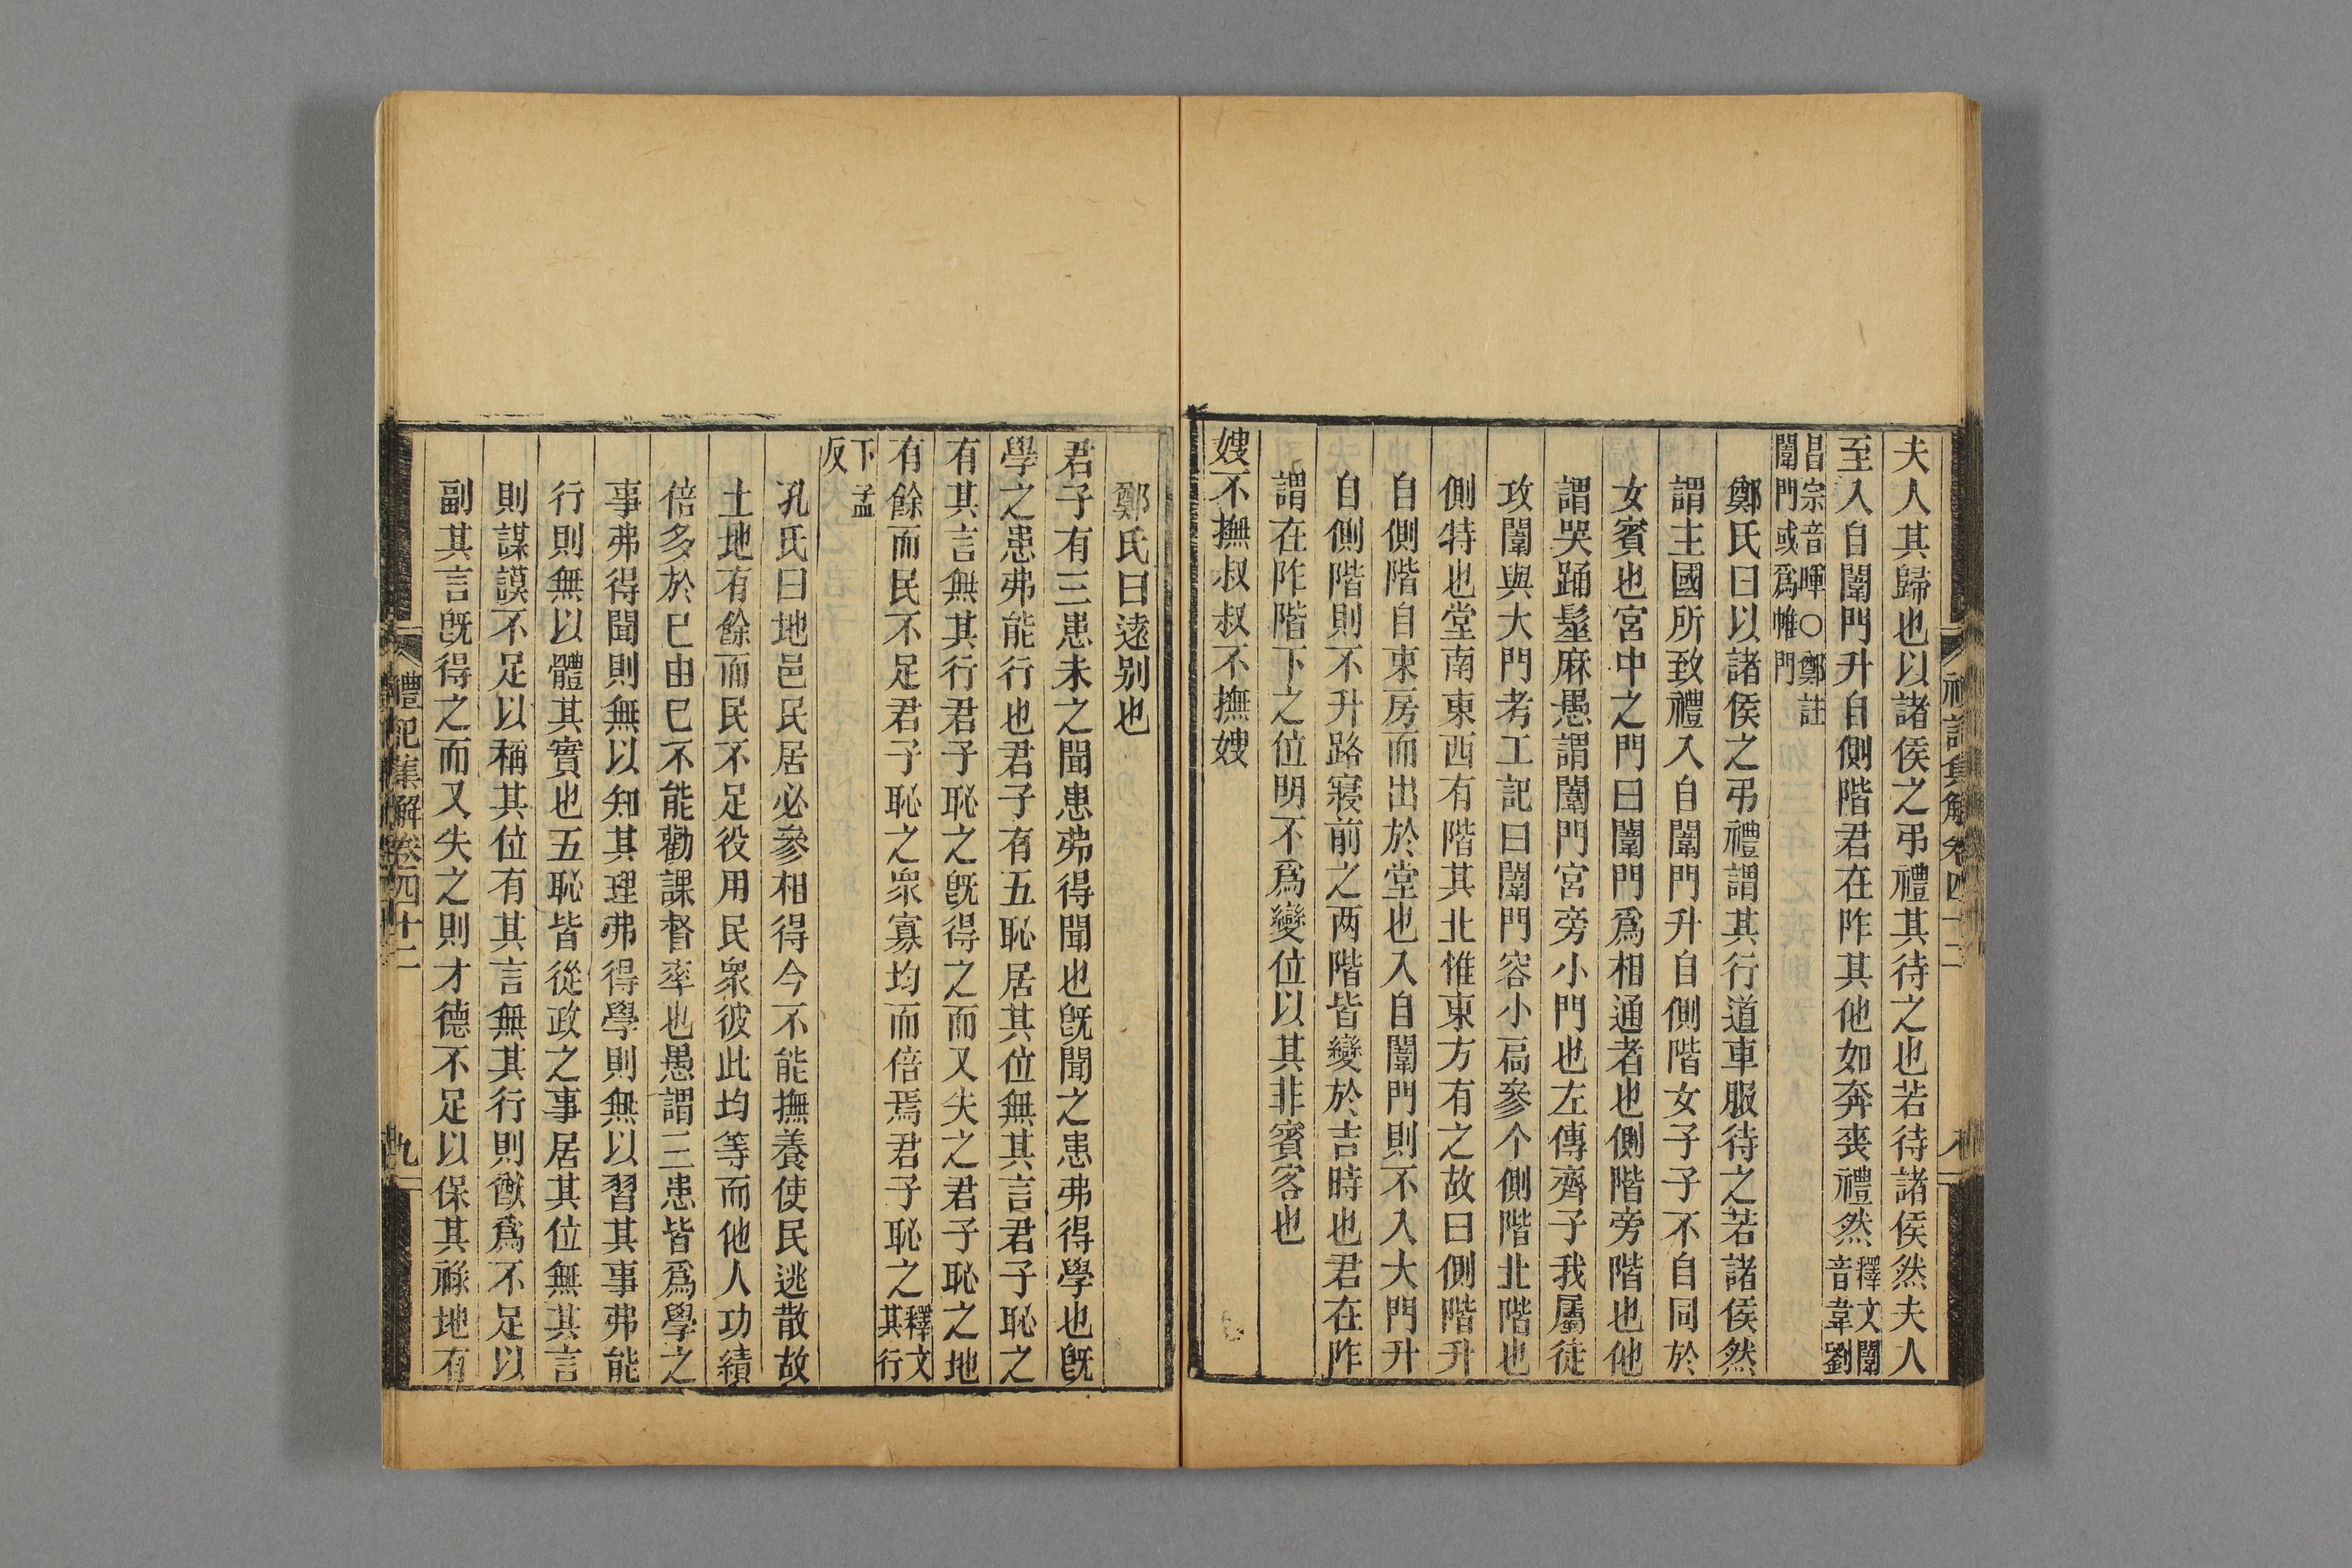 禮記集解卷四十二 八
夫人其歸也以諸侯之弔禮其待之也若待諸侯然夫人
至入自闈門升自側階君在阼其他如奔喪禮然釋文闈音韋劉
昌宗音暉○鄭註闈門或爲帷門
鄭氏曰以諸侯之弔禮謂其行道車服待之若諸侯然
謂主國所致禮入自闈門升自側階女子子不自同於
女賓也宮中之門曰闈門爲相通者也側階旁階也他
謂哭踊髽麻愚謂闈門宮旁小門也左傳齊子我屬徒
攻闈與大門考工記曰闈門容小扃參个側階北階也
側特也堂南東西有階其北惟東方有之故曰側階升
自側階自東房而出於堂也入自闈門則不入大門升
自側階則不升路寢前之两階皆變於吉時也君在阼
謂在阼階下之位明不爲變位以其非賓客也
嫂不撫叔叔不撫嫂
鄭氏曰遠别也
君子有三患未之聞患弗得聞也旣聞之患弗得學也旣
學之患弗能行也君子有五恥居其位無其言君子恥之
有其言無其行君子恥之旣得之而又失之君子恥之地
有餘而民不足君子恥之衆寡均而倍焉君子恥之釋文其行
下孟反
孔氏曰地邑民居必參相得今不能撫養使民逃散故
土地有餘而民不足役用民衆彼此均等而他人功績
倍多於己由己不能勸課督率也愚謂三患皆爲學之
事弗得聞則無以知其理弗得學則無以習其事弗能
行則無以體其實也五恥皆從政之事居其位無其言
則謀謨不足以稱其位有其言無其行則猷爲不足以
副其言旣得之而又失之則才德不足以保其祿地有
禮記集解卷四十二 九